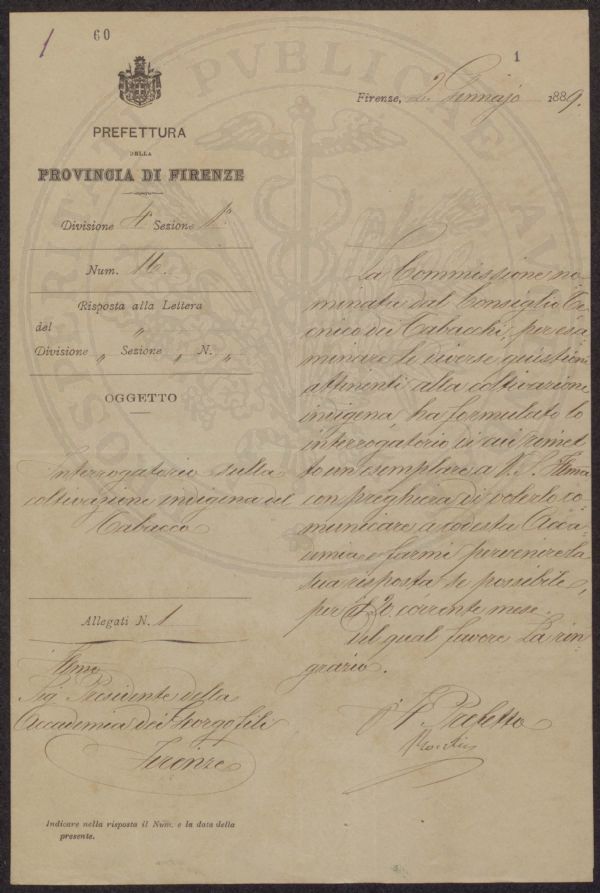 1
60
1
PREFETTURA
DELLA
PROVINCIA DI FIRENZE
Firenze, 2 Gennajo 1889.
Divisione 4ª Sezione 1ª
Num. 16.
Risposta alla Lettera
del "
Divisione " Sezione " N. "
OGGETTO
Interrogatorio sulla
coltivazione indigena del
Tabacco
Allegati N. 1
Illmo
Sig. Presidente della
Accademia dei Georgofili
Firenze
Indicare nella risposta il Num. e la data della
presente.
La Commissione no-
minata dal Consiglio Te-
cnico dei Tabacchi, per esa-
minare le diverse quistioni
attinenti alla coltivazione
indigena, ha formulato lo
interrogatorio di cui rimet-
to un esemplare a V. S. Illma
con preghiera di volerlo co-
municare a codesta Acca-
demia e farmi pervenire la
sua risposta se possibile,
per il 20 corrente mese.
Del qual favore La rin-
grazio.
Il Prefetto
PVBLICAE